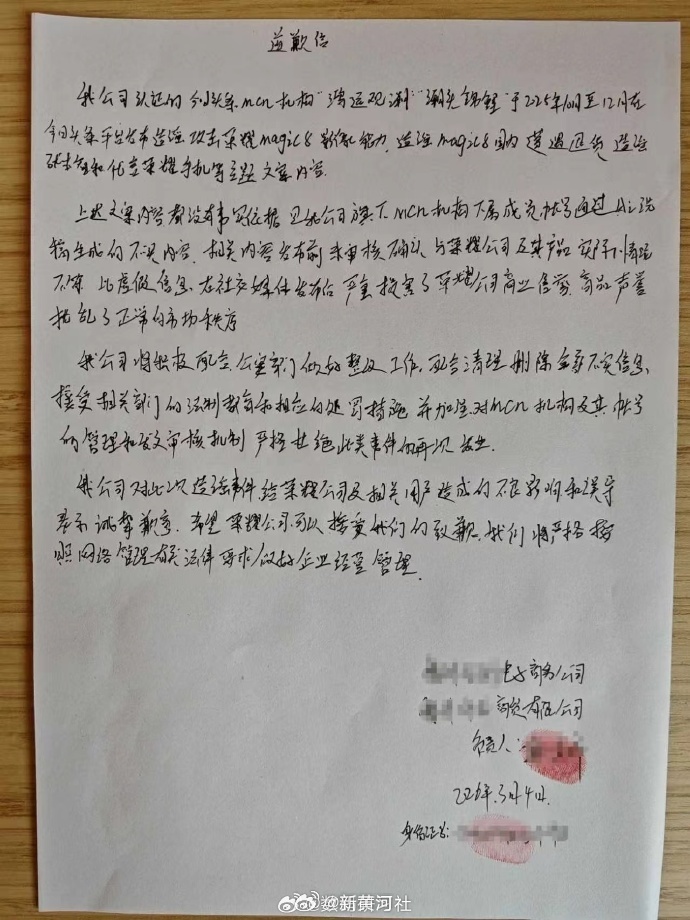 道歉信
我公司认证的今日头条MCN机构"鸿运观测""潮先锦鲤"于2025年10月至12月在
今日头条平台发布造谣攻击荣耀magic8影像能力,造谣magic8国内遭遇退货 造谣
和荣耀手机等主题文案内容.
上述文案内容都没有事实依据 是我公司旗下MCN机构下属成员帐号通过AI洗
稿生成的不实内容、相关内容发布前未审核确认、与荣耀公司及其产品实际情况
不符 此虚假信息在社交媒体发布后 严重损害了荣耀公司商业信誉、商品声誉
扰乱了正常的市场秩序
我公司将积极配合公安部门做好整改工作,配合清理删除全部不实信息,
接受相关部门的法制教育和相应的处罚措施 并加强对MCN机构及其帐号
的管理和发文审核机制 严格杜绝此类事件的再次发生.
我公司对此次造谣事件给荣耀公司及相关用户造成的不良影响和误导
表示诚挚歉意.希望荣耀公司可以接受我们的致歉、我们将严格按
照网络管理相关法律要求做好企业经营管理.
电子商务公司
商贸有限公司
负责人:
2026年.3月4日.
身份证号:
@新黄河社